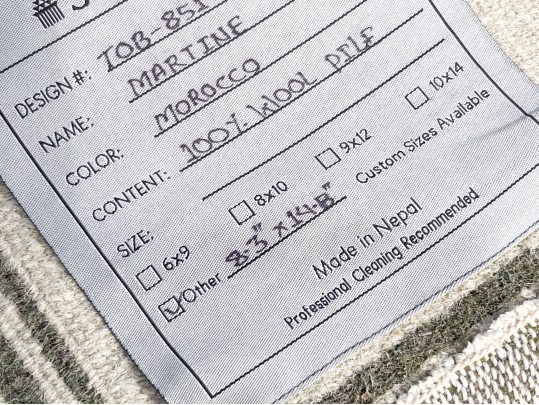 DESIGN #: TOB-851
NAME: MARTINE
COLOR: MOROCCO
CONTENT: 100% WOOL PILE
SIZE:
6x9 8x10 9x12 10x14
Other 8'3" x 14'8" Custom Sizes Available
Made in Nepal
Professional Cleaning Recommended